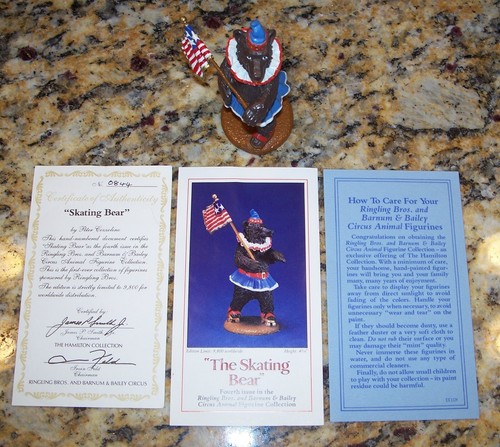 № 0844
Certificate of Authenticity
"Skating Bear"
by Peter Cozzolino
This hand-numbered document certifies
"Skating Bear" is the fourth issue in the
Ringling Bros. and Barnum & Bailey
Circus Animal Figurine Collection.
This is the first-ever collection of figurines
sponsored by Ringling Bros.
The edition is strictly limited to 9,800 for
worldwide distribution.
Certified by
James P. Smith, Jr.
Chairman
THE HAMILTON COLLECTION
Chairman
RINGLING BROS. AND BARNUM & BAILEY CIRCUS
"The Skating
Bear"
Fourth issue in the
Ringling Bros. and Barnum & Bailey
Circus Animal Figurine Collection
How To Care For Your
Ringling Bros. and
Barnum & Bailey
Circus Animal Figurines
Congratulations on choosing the
Ringling Bros. and Barnum & Bailey
Circus Animal Figurine Collection – an
exclusive offering of The Hamilton
Collection. With a minimum of care,
your handsome, hand-painted figur-
ines will bring you and your family
many, many years of enjoyment.
Take care to display your figurines
away from direct sunlight to avoid
fading of the colors. Handle your
figurines only when necessary, to avoid
unnecessary "wear and tear" on the
paint.
If they should become dusty, use a
feather duster or a very soft cloth to
clean. Do not rub their surface or you
may damage their "mint" quality.
Never immerse these figurines in
water, and do not use any type of
commercial cleaners.
Finally, do not allow small children
to play with your collection – its paint
residue could be harmful.